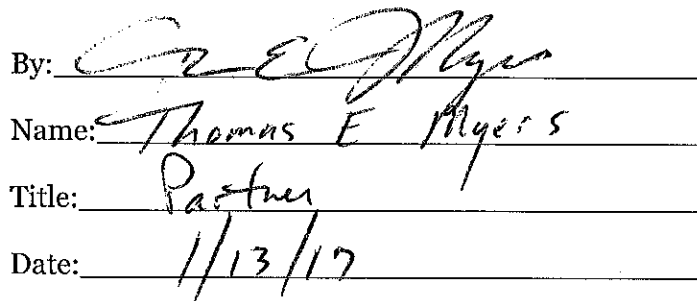 By: Myers
Name: Thomas E Myers
Title: Partner
Date: 1/13/17